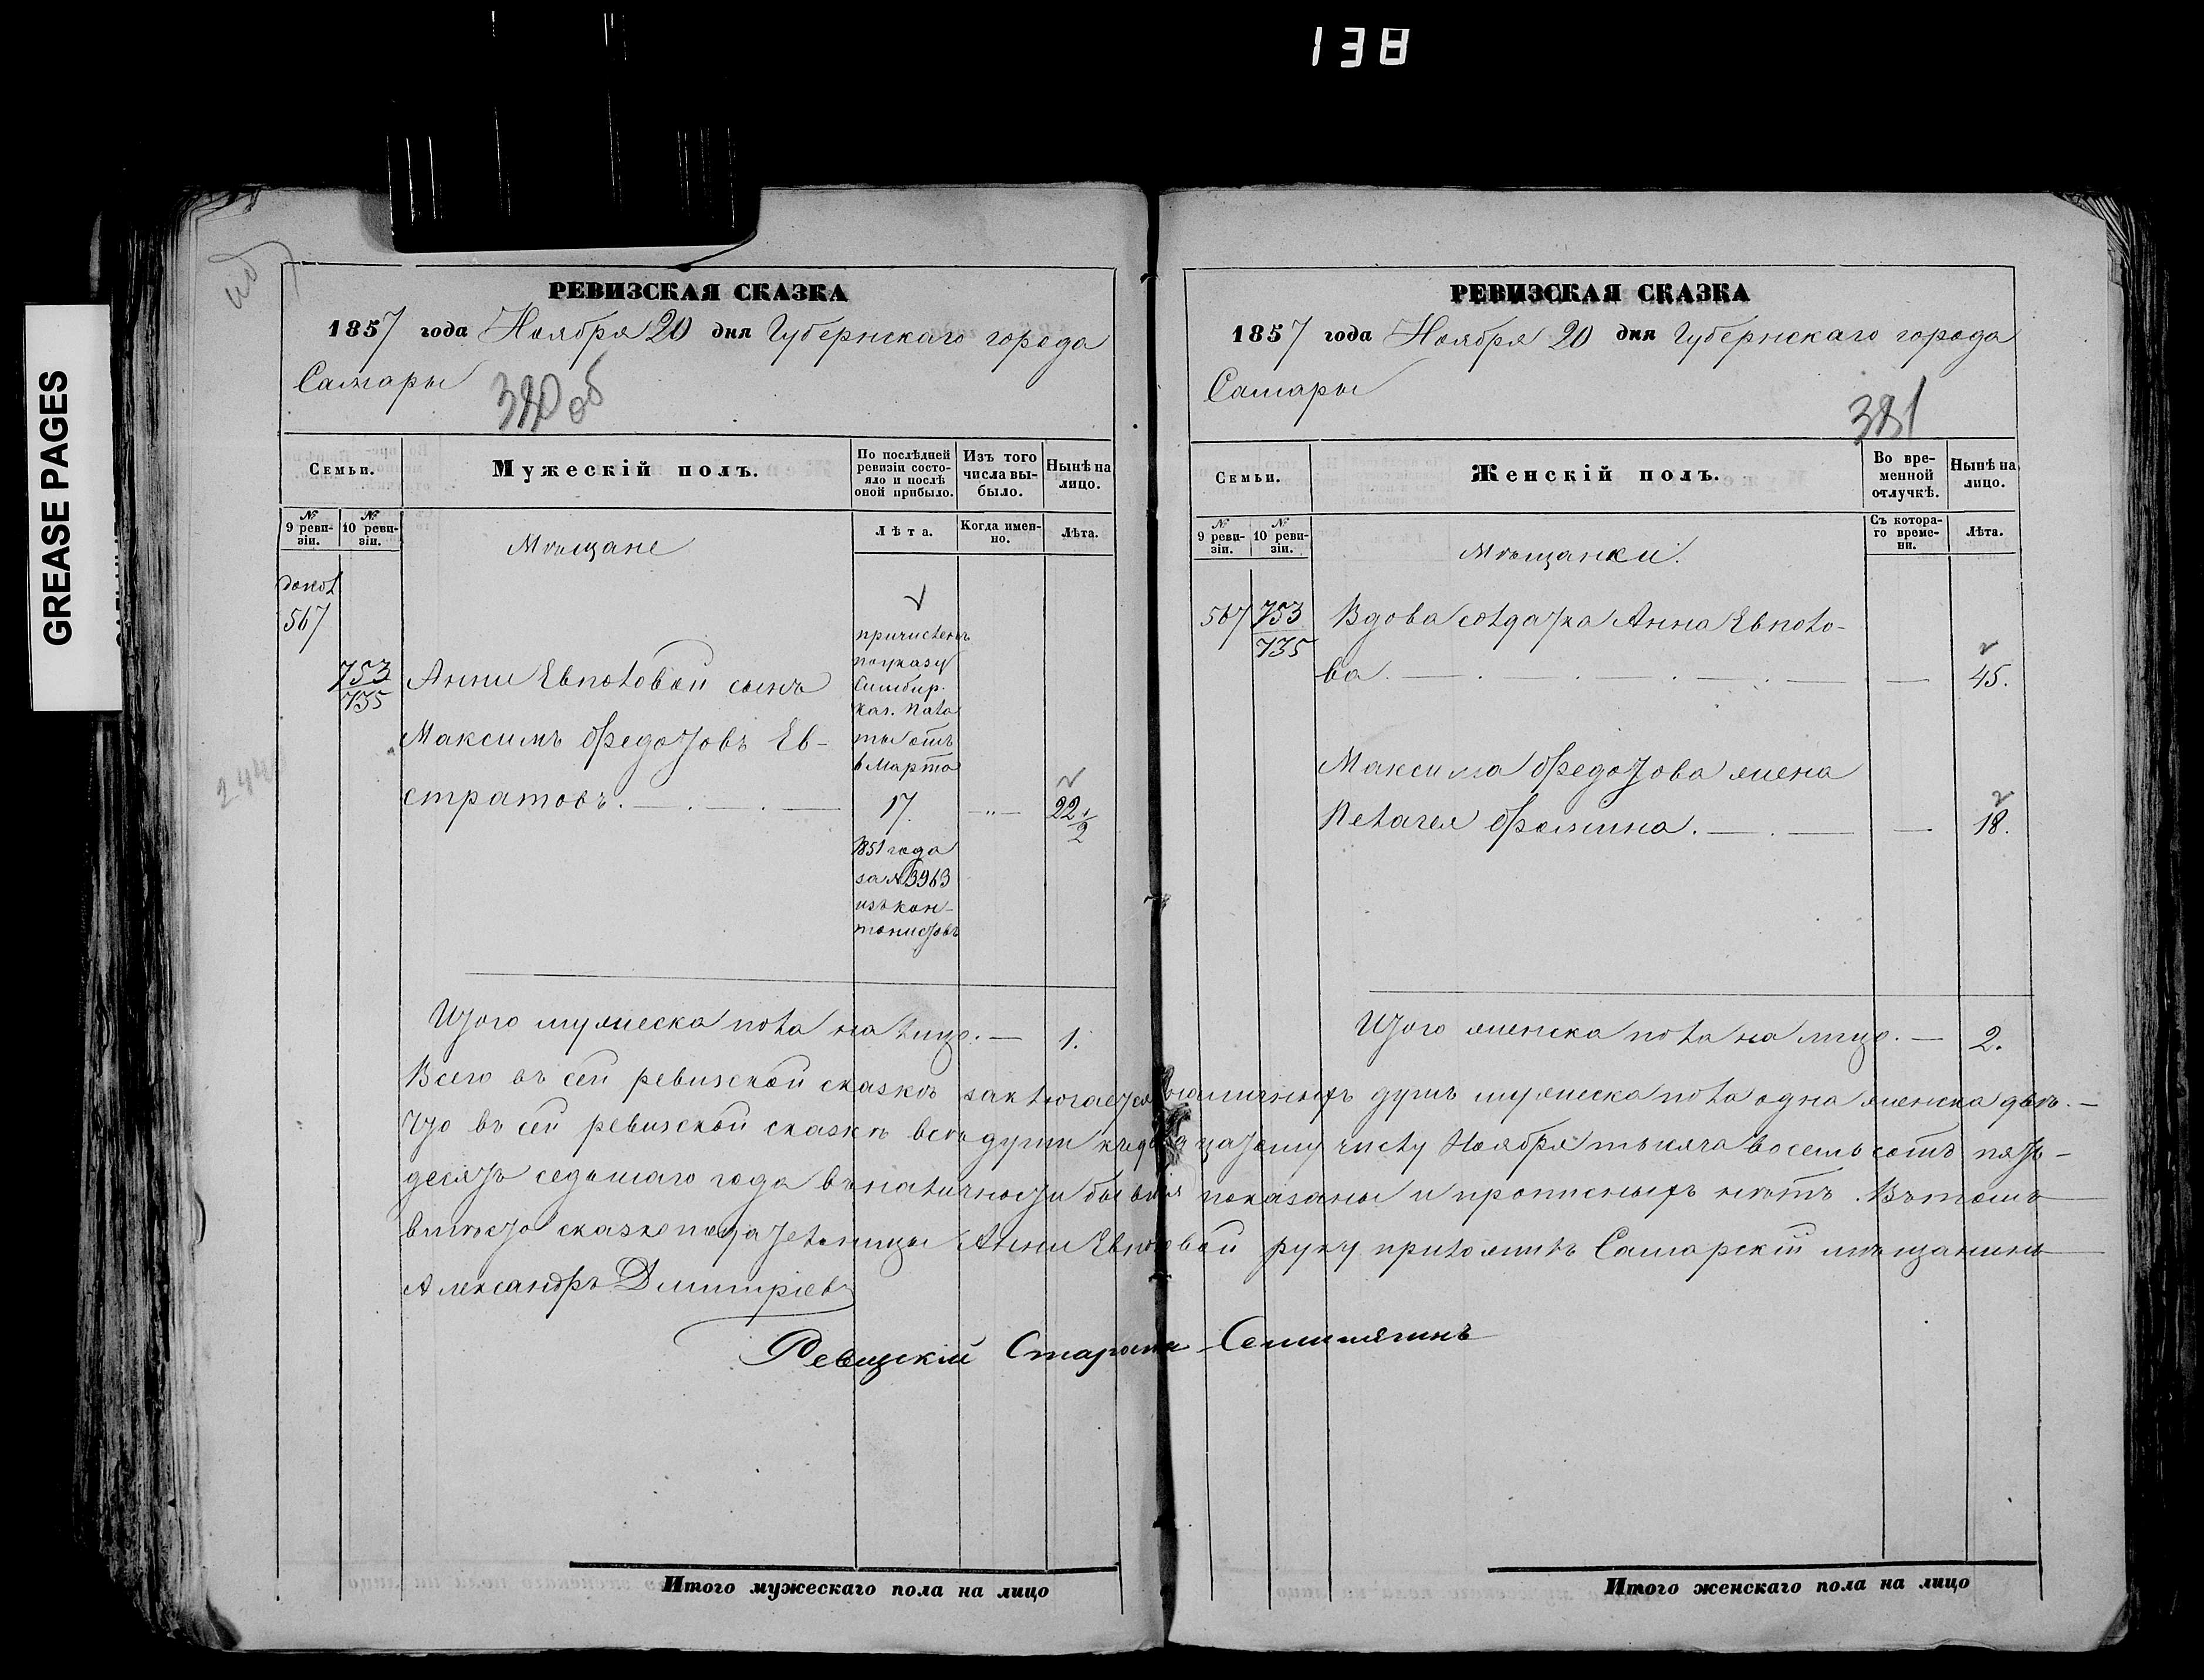 138
GREASE PAGES
РЕВИЗСКАЯ СКАЗКА
1857 года Ноября 20 дня Губернскаго города
Самары
380 об
Семьи.
Мужескій полъ.
По послѣдней ревизіи состояло и послѣ оной прибыло.
Изъ того числа выбыло.
Нынѣ на лицо.
№ 9 ревизіи.
№ 10 ревизіи.
Мѣщане
Лѣта.
Когда именно.
Лѣта.
допол
567
753
735
Анны Евполовой сынъ
Максимъ Федотовъ Ев-
стратовъ.
причисленъ
по указу
Симбир.
Каз. Пала
ты отъ
6 Марта
17.
22 1/2
1851 года
за № 3963
изъ кан-
тонистовъ
Итого мужеска пола на лицо. — 1.
РЕВИЗСКАЯ СКАЗКА
1857 года Ноября 20 дня Губернскаго города
Самары
381
Семьи.
Женскій полъ.
Во временной отлучкѣ.
Нынѣ на лицо.
№ 9 ревизіи.
№ 10 ревизіи.
Мѣщанки.
Съ котораго времени.
Лѣта.
567 753
735
Вдова солдатка Анна Евполо-
ва. — 45.
Максима Федотова жена
Пелагея Фомина. — 18.
Итого женска пола на лицо. — 2.
Всего въ сей ревизской сказкѣ заключается наличныхъ душъ мужеска пола одна женска двѣ. —
Что въ сей ревизской сказкѣ всѣ души къ двадцатому числу Ноября тысяча восемь сотъ пять-
десятъ седьмаго года въ наличности бывшія показаны и прописныхъ нѣтъ. Въ томъ
вмѣсто сказкоподательницы Анны Евполовой руку приложилъ Самарскій мѣщанинъ
Александръ Дмитріевъ
Ревизскій Староста
Итого мужескаго пола на лицо
Итого женскаго пола на лицо